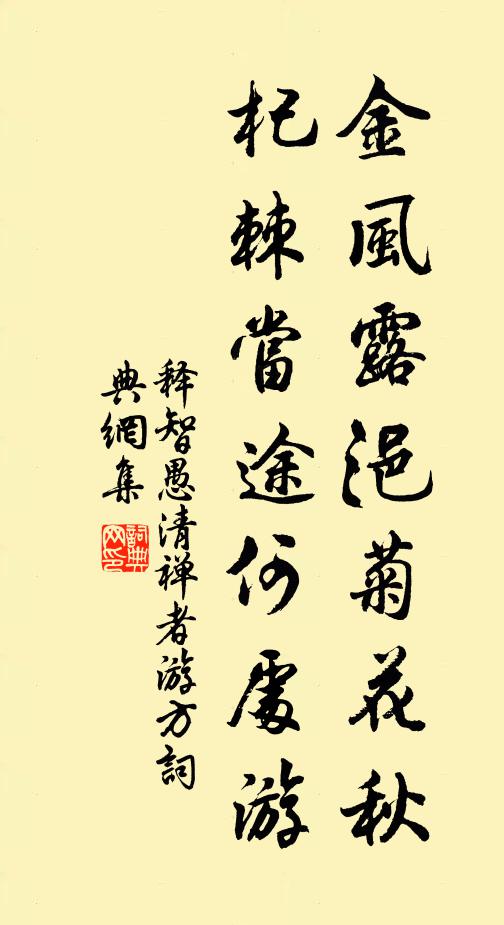 金風露浥菊花秋
杞棘當途何處游
释智愚清禅者游方詞
典網集
詞典
网印